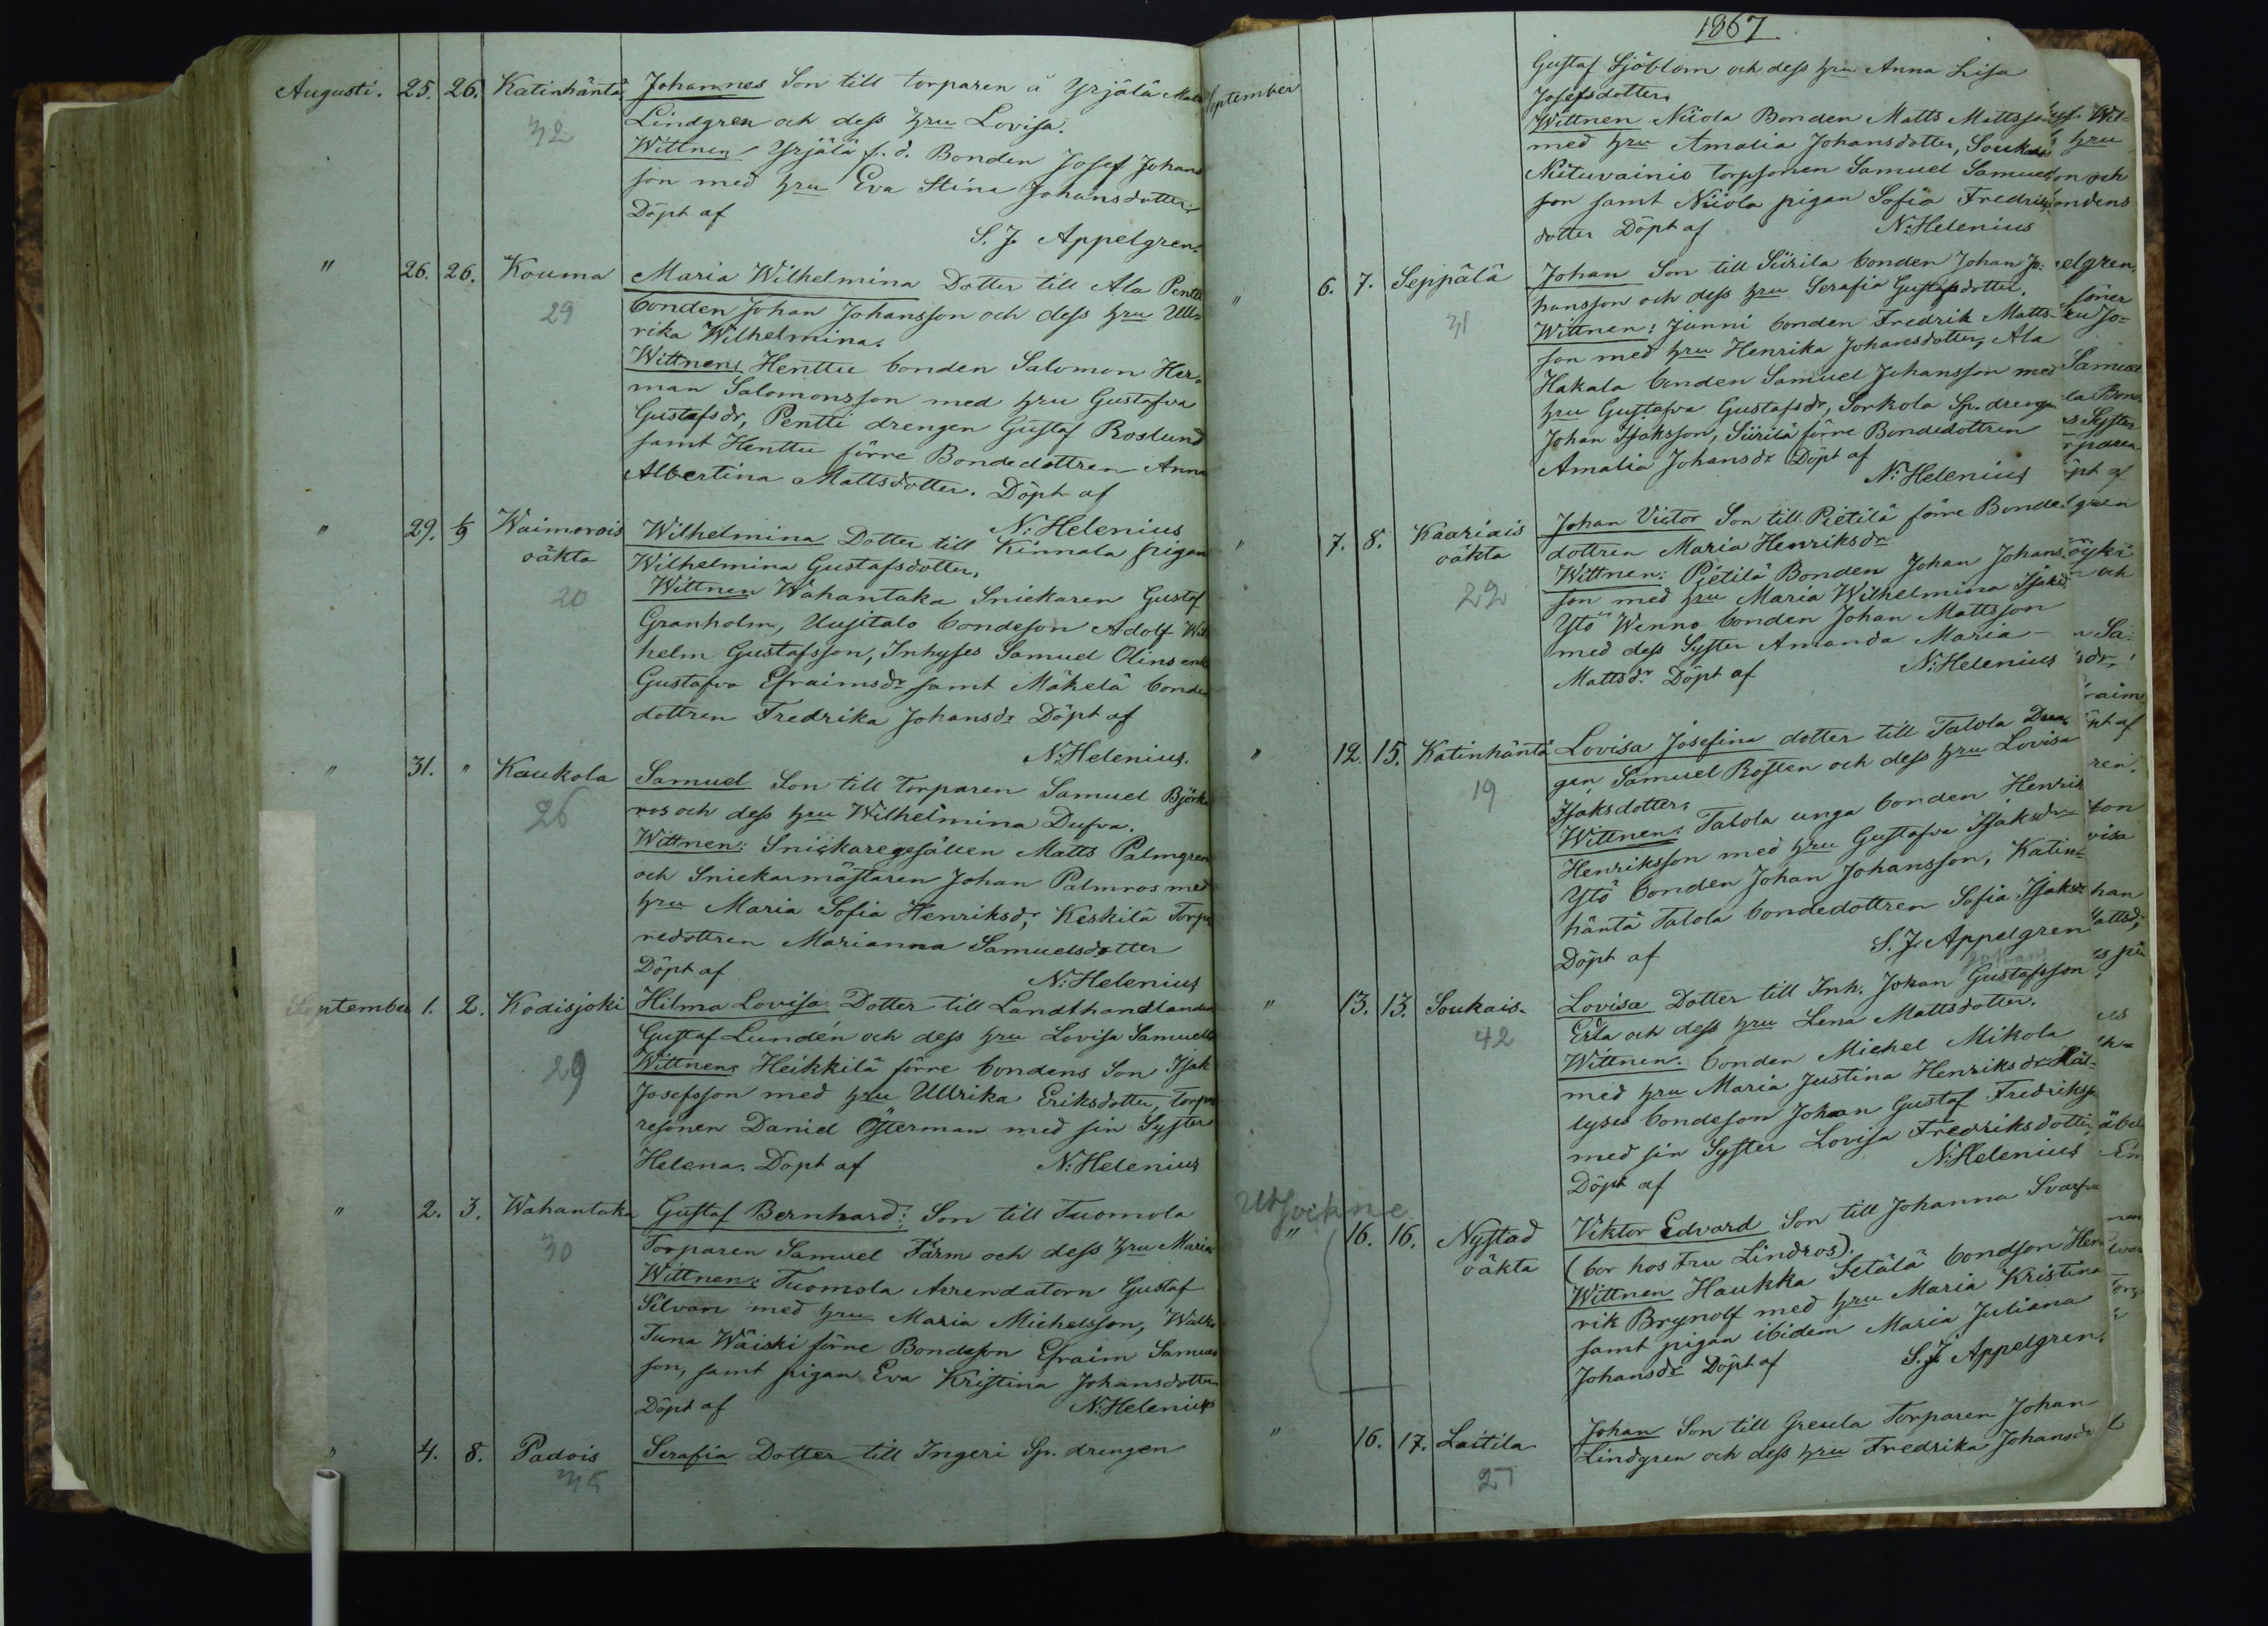 Augusti. 25. 26. Katinhäntä Johannes Son till torparen å Yrjälä Matts
32 Lindgren och dess hru Lovisa.
Wittnen Yrjälä f. d. Bonden Josef Johans
son med hru Eva Stina Johansdotter
Döpt af
S. J. Appelgren.
" 26. 26. Kouma Maria Wilhelmina Dotter till Ala Pentti
29 bonden Johan Johansson och dess hru Ull-
rika Wilhelmina.
Wittnen: Henttu bonden Salomon Her-
man Salomonsson med hru Gustafva
Gustafsdr, Pentti drengen Gustaf Roslund
samt Henttu förre Bondedottren Anna
Albertina Mattsdotter. Döpt af
N. Helenius
" 29. 1/9 Waimorois Wilhelmina Dotter till Kinnala pigan
oäkta Wilhelmina Gustafsdotter.
20 Wittnen Wahantaka Snickaren Gustaf
Granholm, Uusitalo bondeson Adolf Wil
helm Gustafsson, Inhyses Samuel Olins enk
Gustafva Efraimsdr samt Mäkelä bonde
dottren Fredrika Johansdr Döpt af
N. Helenius.
" 31. " Kaukola Samuel Son till Torparen Samuel Björk
26 ros och dess hru Wilhelmina Dufva.
Wittnen: Snickaregesällen Matts Palmgren
och Snickarmästaren Johan Palmros med
hru Maria Sofia Henriksdr, Keskilä Torpa
redottren Marianna Samuelsdotter
Döpt af N. Helenius
September 1. 2. Kodisjoki Hilma Lovisa Dotter till Landthandlanden
Gustaf Lundén och dess hru Lovisa Samuelsdr
29 Wittnen: Heikkilä förre bondens Son Isak
Josefsson med hru Ullrika Eriksdotter, torpa
resonen Daniel Österman med sin Syster
Helena. Döpt af N. Helenius
" 2. 3. Wahantaka Gustaf Bernhard: Son till Tuomola
30 Torparen Samuel Färm och dess hru Maria
Wittnen: Tuomola Arrendatorn Gustaf
Silvan med hru Maria Michelsson, Walko
Tuna Wäiski förre Bondeson Efraim Samuels
son, samt pigan Eva Kristina Johansdotter
Döpt af N. Helenius
" 4. 8. Padois Serafia Dotter till Ingeri Sp. drengen
35
1867
September Gustaf Sjöblom och dess hru Anna Lisa
Josefsdotter.
Wittnen Niiola Bonden Matts Mattsson
med hru Amalia Johansdotter, Soukais
Niituvainio torpsonen Samuel Samuels
son samt Niiola pigan Sofia Fredriks
dotter Döpt af N. Helenius
" 6. 7. Seppälä Johan Son till Siirila bonden Johan Jo-
31 hansson och dess hru Serafia Gustafsdotter.
Wittnen: Junni bonden Fredrik Matts-
son med hru Henrika Johansdotter, Ala
Hakala bonden Samuel Johansson med
hru Gustafva Gustafsdr, Sorkola Sp. drengen
Johan Isaksson, Siirilä förre Bondedottren
Amalia Johansdr Döpt af
N. Helenius
" 7. 8. Kaariais Johan Victor Son till Pietilä förre Bonde
oäkta dottren Maria Henriksdr
22 Wittnen: Pietilä Bonden Johan Johans
son med hru Maria Wilhelmina Isaksd.
Ytö Wenno bonden Johan Mattsson
med dess Syster Amanda Maria
Mattsdr Döpt af N. Helenius
" 12. 15. Katinhäntä Lovisa Josefina dotter till Talola Dren
19 gen Samuel Rosten och dess hru Lovisa
Isaksdotter.
Wittnen: Talola unga bonden Henrik
Henriksson med hru Gustafva Isaksdr
Ytö bonden Johan Johansson, Katin-
häntä Talola bondedottren Sofia Isaksdr
Döpt af S. J. Appelgren
" 13. 13. Soukais. Lovisa Dotter till Inh. Johan Gustafsson
42 Erla och dess hru Lena Mattsdotter.
Wittnen: bonden Michel Mikola
med hru Maria Justina Henriksdr
lyses bondeson Johan Gustaf Fredrikss
med sin Syster Lovisa Fredriksdotter,
Döpt af N. Helenius
Utsockne
" 16. 16. Nystad Viktor Edvard Son till Johanna Svarfva
oäkta (bor hos Fru Lindros).
Wittnen Haukka Setälä bondson Hen
rik Brynolf med hru Maria Kristina
samt pigan ibidem Maria Juliana
Johansdr Döpt af S. J. Appelgren.
" 16. 17. Laitila Johan Son till Greula Torparen Johan
27 Lindgren och dess hru Fredrika Johansdr